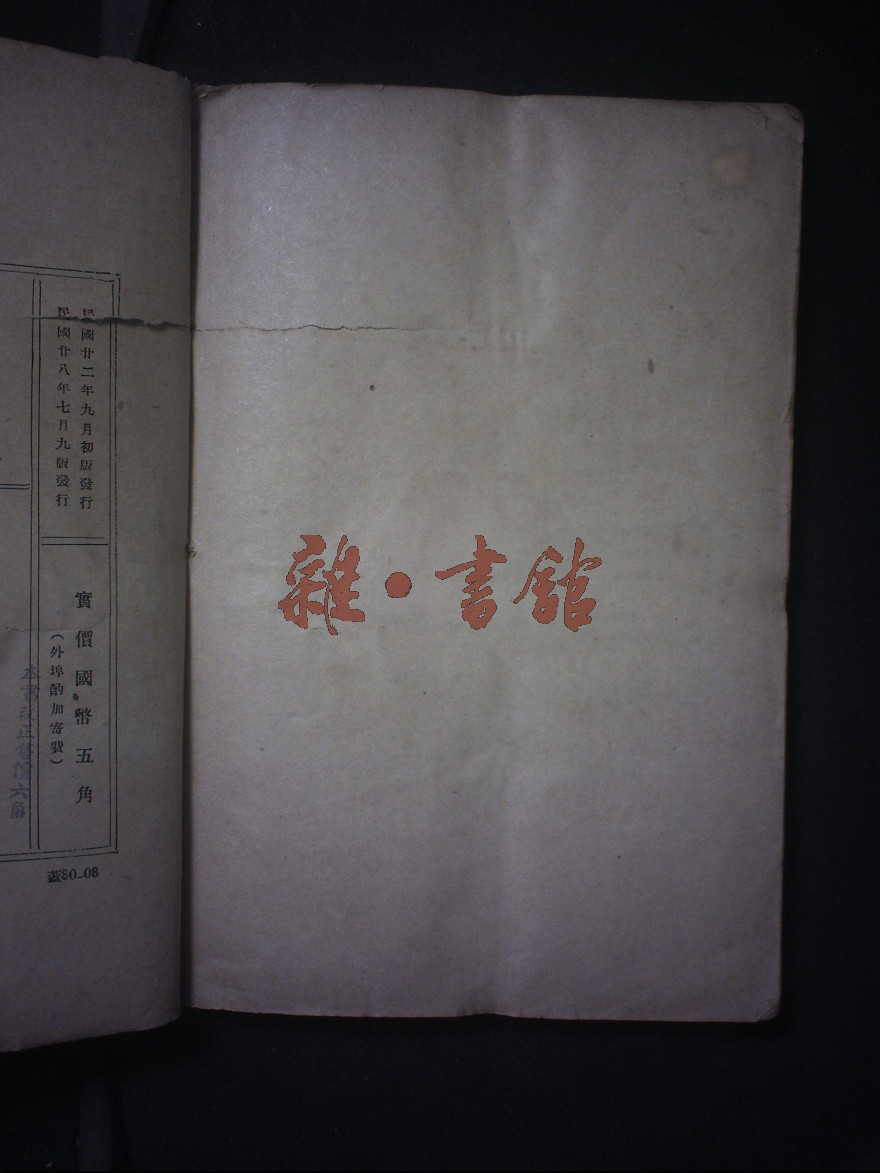 民國廿二年九月初版發行
民國廿八年七月九版發行
實價國幣五角
（外埠酌加寄費）
本書改正售價六角
蓋80-08
雜·書館